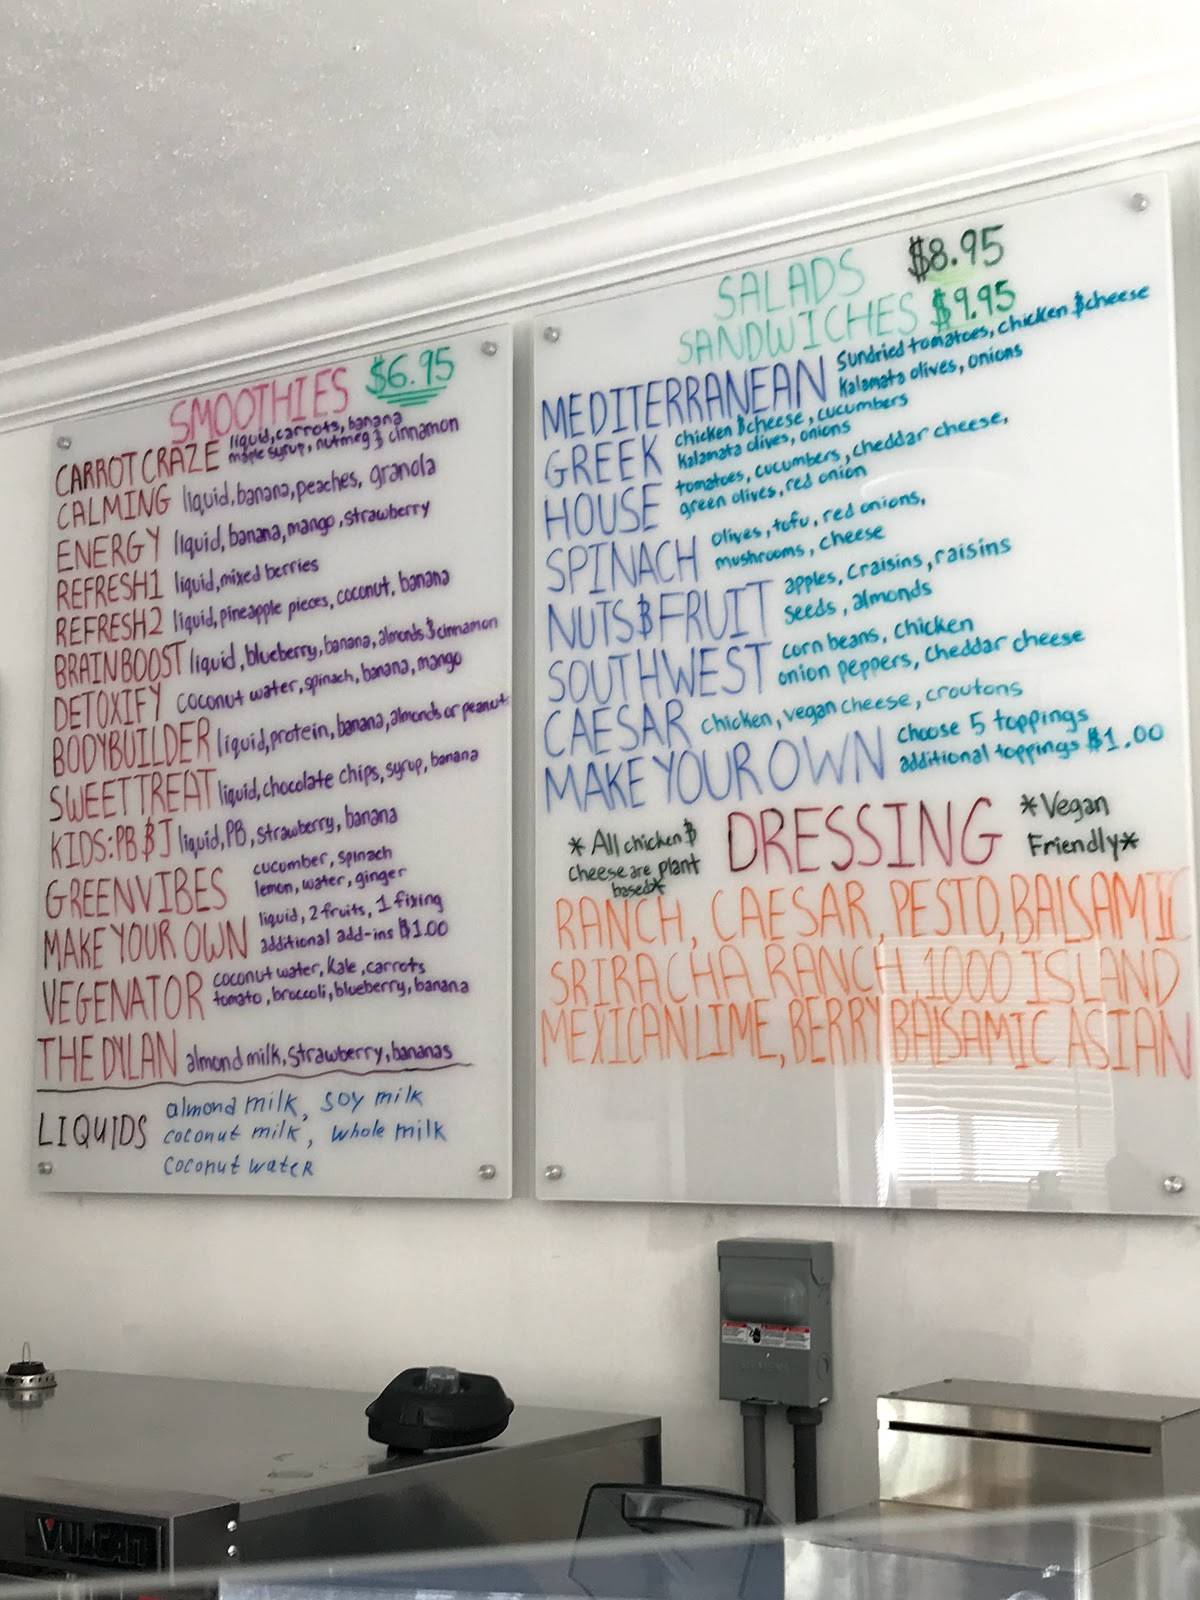 SMOOTHIES $6.95
CARROT CRAZE liquid, carrots, banana
maple syrup, nutmeg & cinnamon
CALMING liquid, banana, peaches, granola
ENERGY liquid, banana, mango, strawberry
REFRESH1 liquid, mixed berries
REFRESH2 liquid, pineapple pieces, coconut, banana
BRAIN BOOST liquid, blueberry, banana, almonds & cinnamon
DETOXIFY coconut water, spinach, banana, mango
BODYBUILDER liquid, protein, banana, almonds or peanut
SWEET TREAT liquid, chocolate chips, syrup, banana
KIDS: PB & J liquid, PB, strawberry, banana
GREEN VIBES cucumber, spinach
lemon, water, ginger
MAKE YOUR OWN liquid, 2 fruits, 1 fixing
additional add-ins $1.00
VEGENATOR coconut water, Kale, carrots
tomato, broccoli, blueberry, banana
THE DYLAN almond milk, strawberry, bananas
LIQUIDS almond milk, soy milk
coconut milk, whole milk
coconut water
SALADS $8.95
SANDWICHES $9.95
MEDITERRANEAN Sundried tomatoes, chicken & cheese
Kalamata olives, onions
GREEK chicken & cheese, cucumbers
Kalamata olives, onions
HOUSE tomatoes, cucumbers, cheddar cheese,
green olives, red onion
SPINACH olives, tofu, red onions,
mushrooms, cheese
NUTS & FRUIT apples, craisins, raisins
seeds, almonds
SOUTHWEST corn beans, chicken
onion peppers, cheddar cheese
CAESAR chicken, vegan cheese, croutons
MAKE YOUR OWN choose 5 toppings
additional toppings $1.00
*All chicken &
cheese are plant
based*
DRESSING
*Vegan
Friendly*
RANCH, CAESAR, PESTO, BALSAMIC
SRIRACHA RANCH 1000 ISLAND
MEXICAN LIME, BERRY BALSAMIC ASIAN
VULCAN